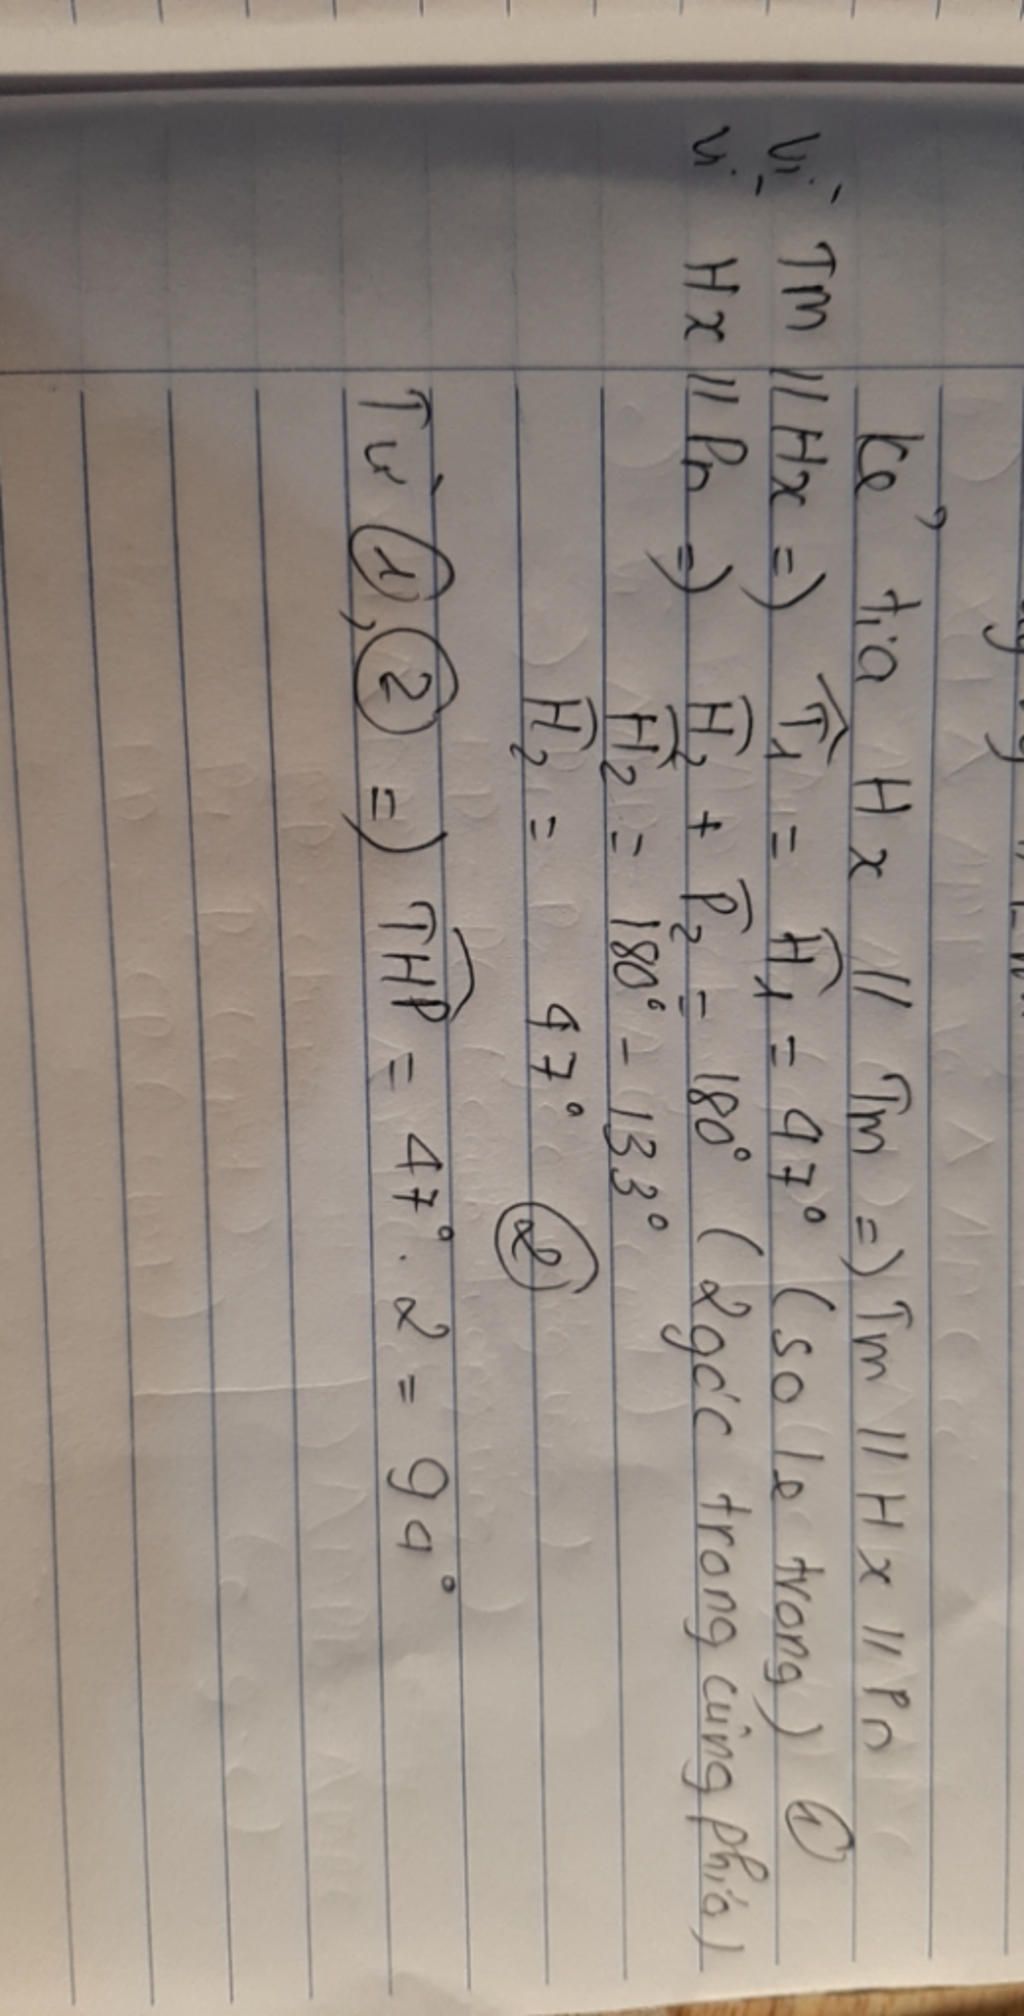 Kẻ tia Hx // Tm => Tm // Hx // Pn
Vì Tm // Hx => T̂₁ = Ĥ₁ = 47° (so le trong) ①
Vì Hx // Pn => Ĥ₂ + P̂₂ = 180° (2 góc trong cùng phía)
Ĥ₂ = 180° - 133°
Ĥ₂ = 47° ②
Từ ①, ② => T͡HP = 47° . 2 = 94°